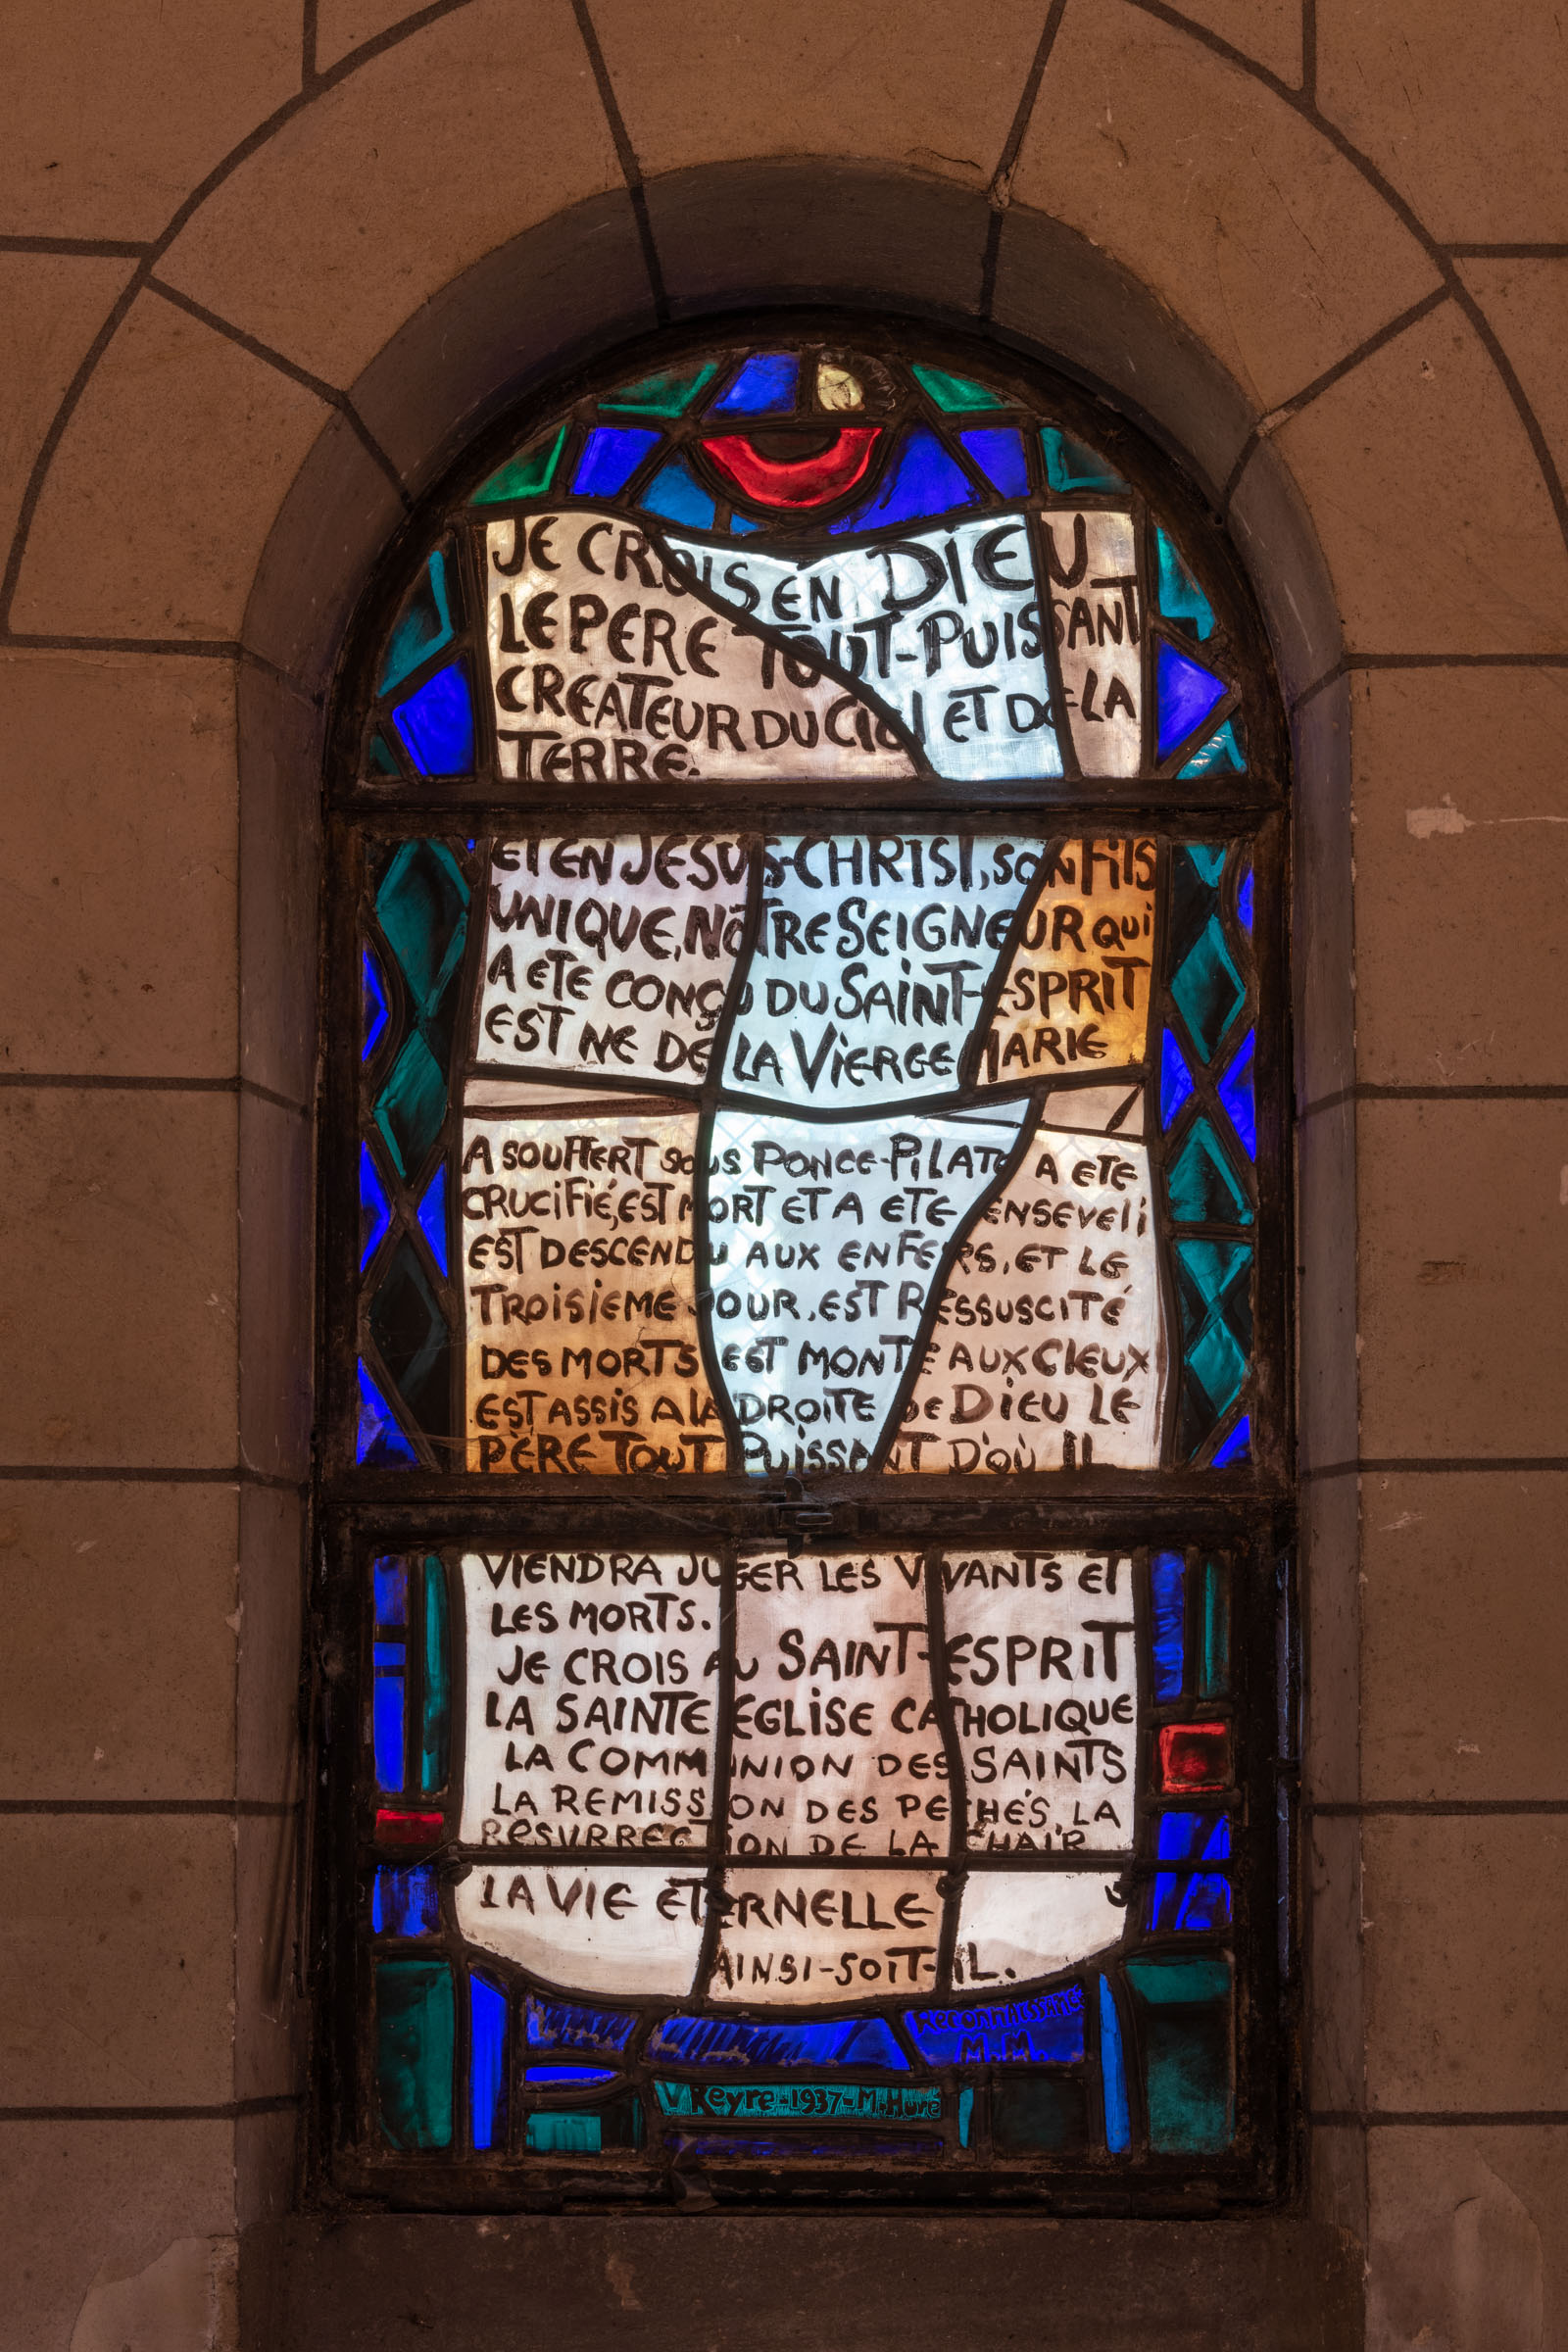 JE CROIS EN DIEU
LE PERE TOUT-PUISSANT
CREATEUR DU CIEL ET DE LA
TERRE.
ET EN JESUS-CHRIST, SON FILS
UNIQUE, NOTRE SEIGNEUR QUI
A ETE CONÇU DU SAINT-ESPRIT
EST NE DE LA VIERGE MARIE
A SOUFFERT SOUS PONCE-PILATE A ETE
CRUCIFIÉ, EST MORT ET A ETE ENSEVELI
EST DESCENDU AUX ENFERS, ET LE
TROISIEME JOUR, EST RESSUSCITÉ
DES MORTS EST MONTE AUX CIEUX
EST ASSIS A LA DROITE DE DIEU LE
PÈRE TOUT PUISSANT D'OÙ IL
VIENDRA JUGER LES VIVANTS ET
LES MORTS.
JE CROIS AU SAINT-ESPRIT
LA SAINTE EGLISE CATHOLIQUE
LA COMMUNION DES SAINTS
LA REMISSION DES PECHÉS, LA
RESURRECTION DE LA CHAIR
LA VIE ÉTERNELLE
AINSI-SOIT-IL.
Reconnaissance
M.M.
V Reyre-1937-M.Huré